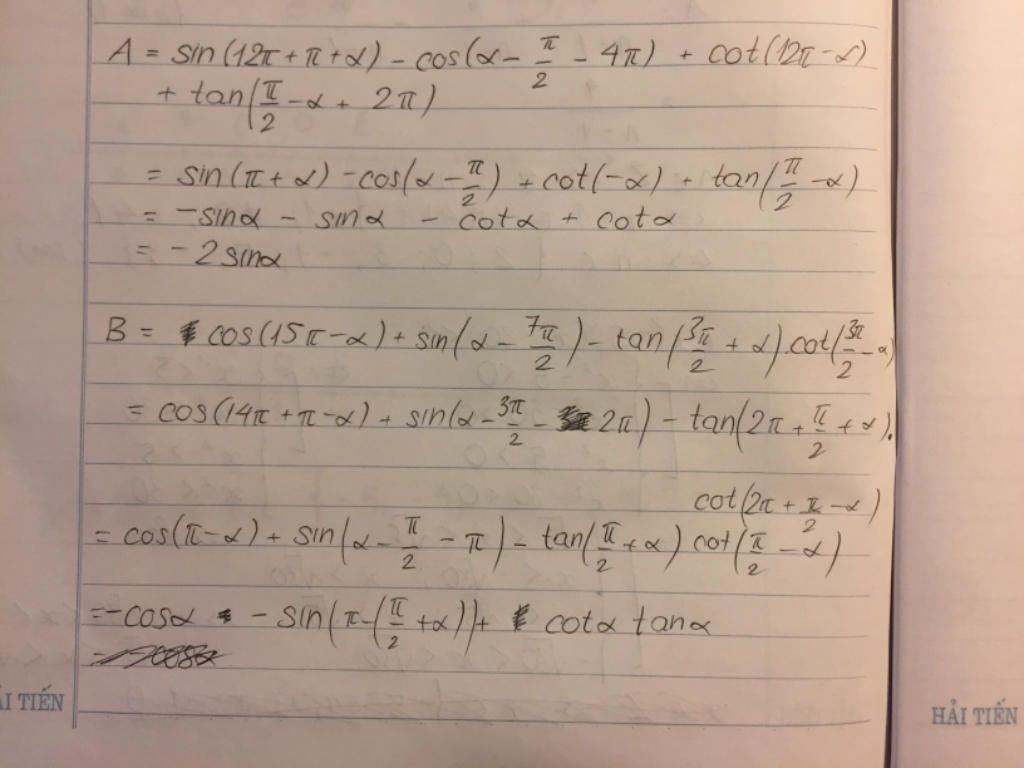 A = sin(12π + π + α) - cos(α - π/2 - 4π) + cot(12π - α)
+ tan(π/2 - α + 2π)
= sin(π + α) - cos(α - π/2) + cot(-α) + tan(π/2 - α)
= -sinα - sinα - cotα + cotα
= -2sinα
B = cos(15π - α) + sin(α - 7π/2) - tan(3π/2 + α).cot(3π/2 - α)
= cos(14π + π - α) + sin(α - 3π/2 - 2π) - tan(2π + π/2 + α).
cot(2π + π/2 - α)
= cos(π - α) + sin(α - π/2 - π) - tan(π/2 + α) cot(π/2 - α)
= -cosα - sin(π - (π/2 + α)) + cotα tanα
ẢI TIẾN
HẢI TIẾN